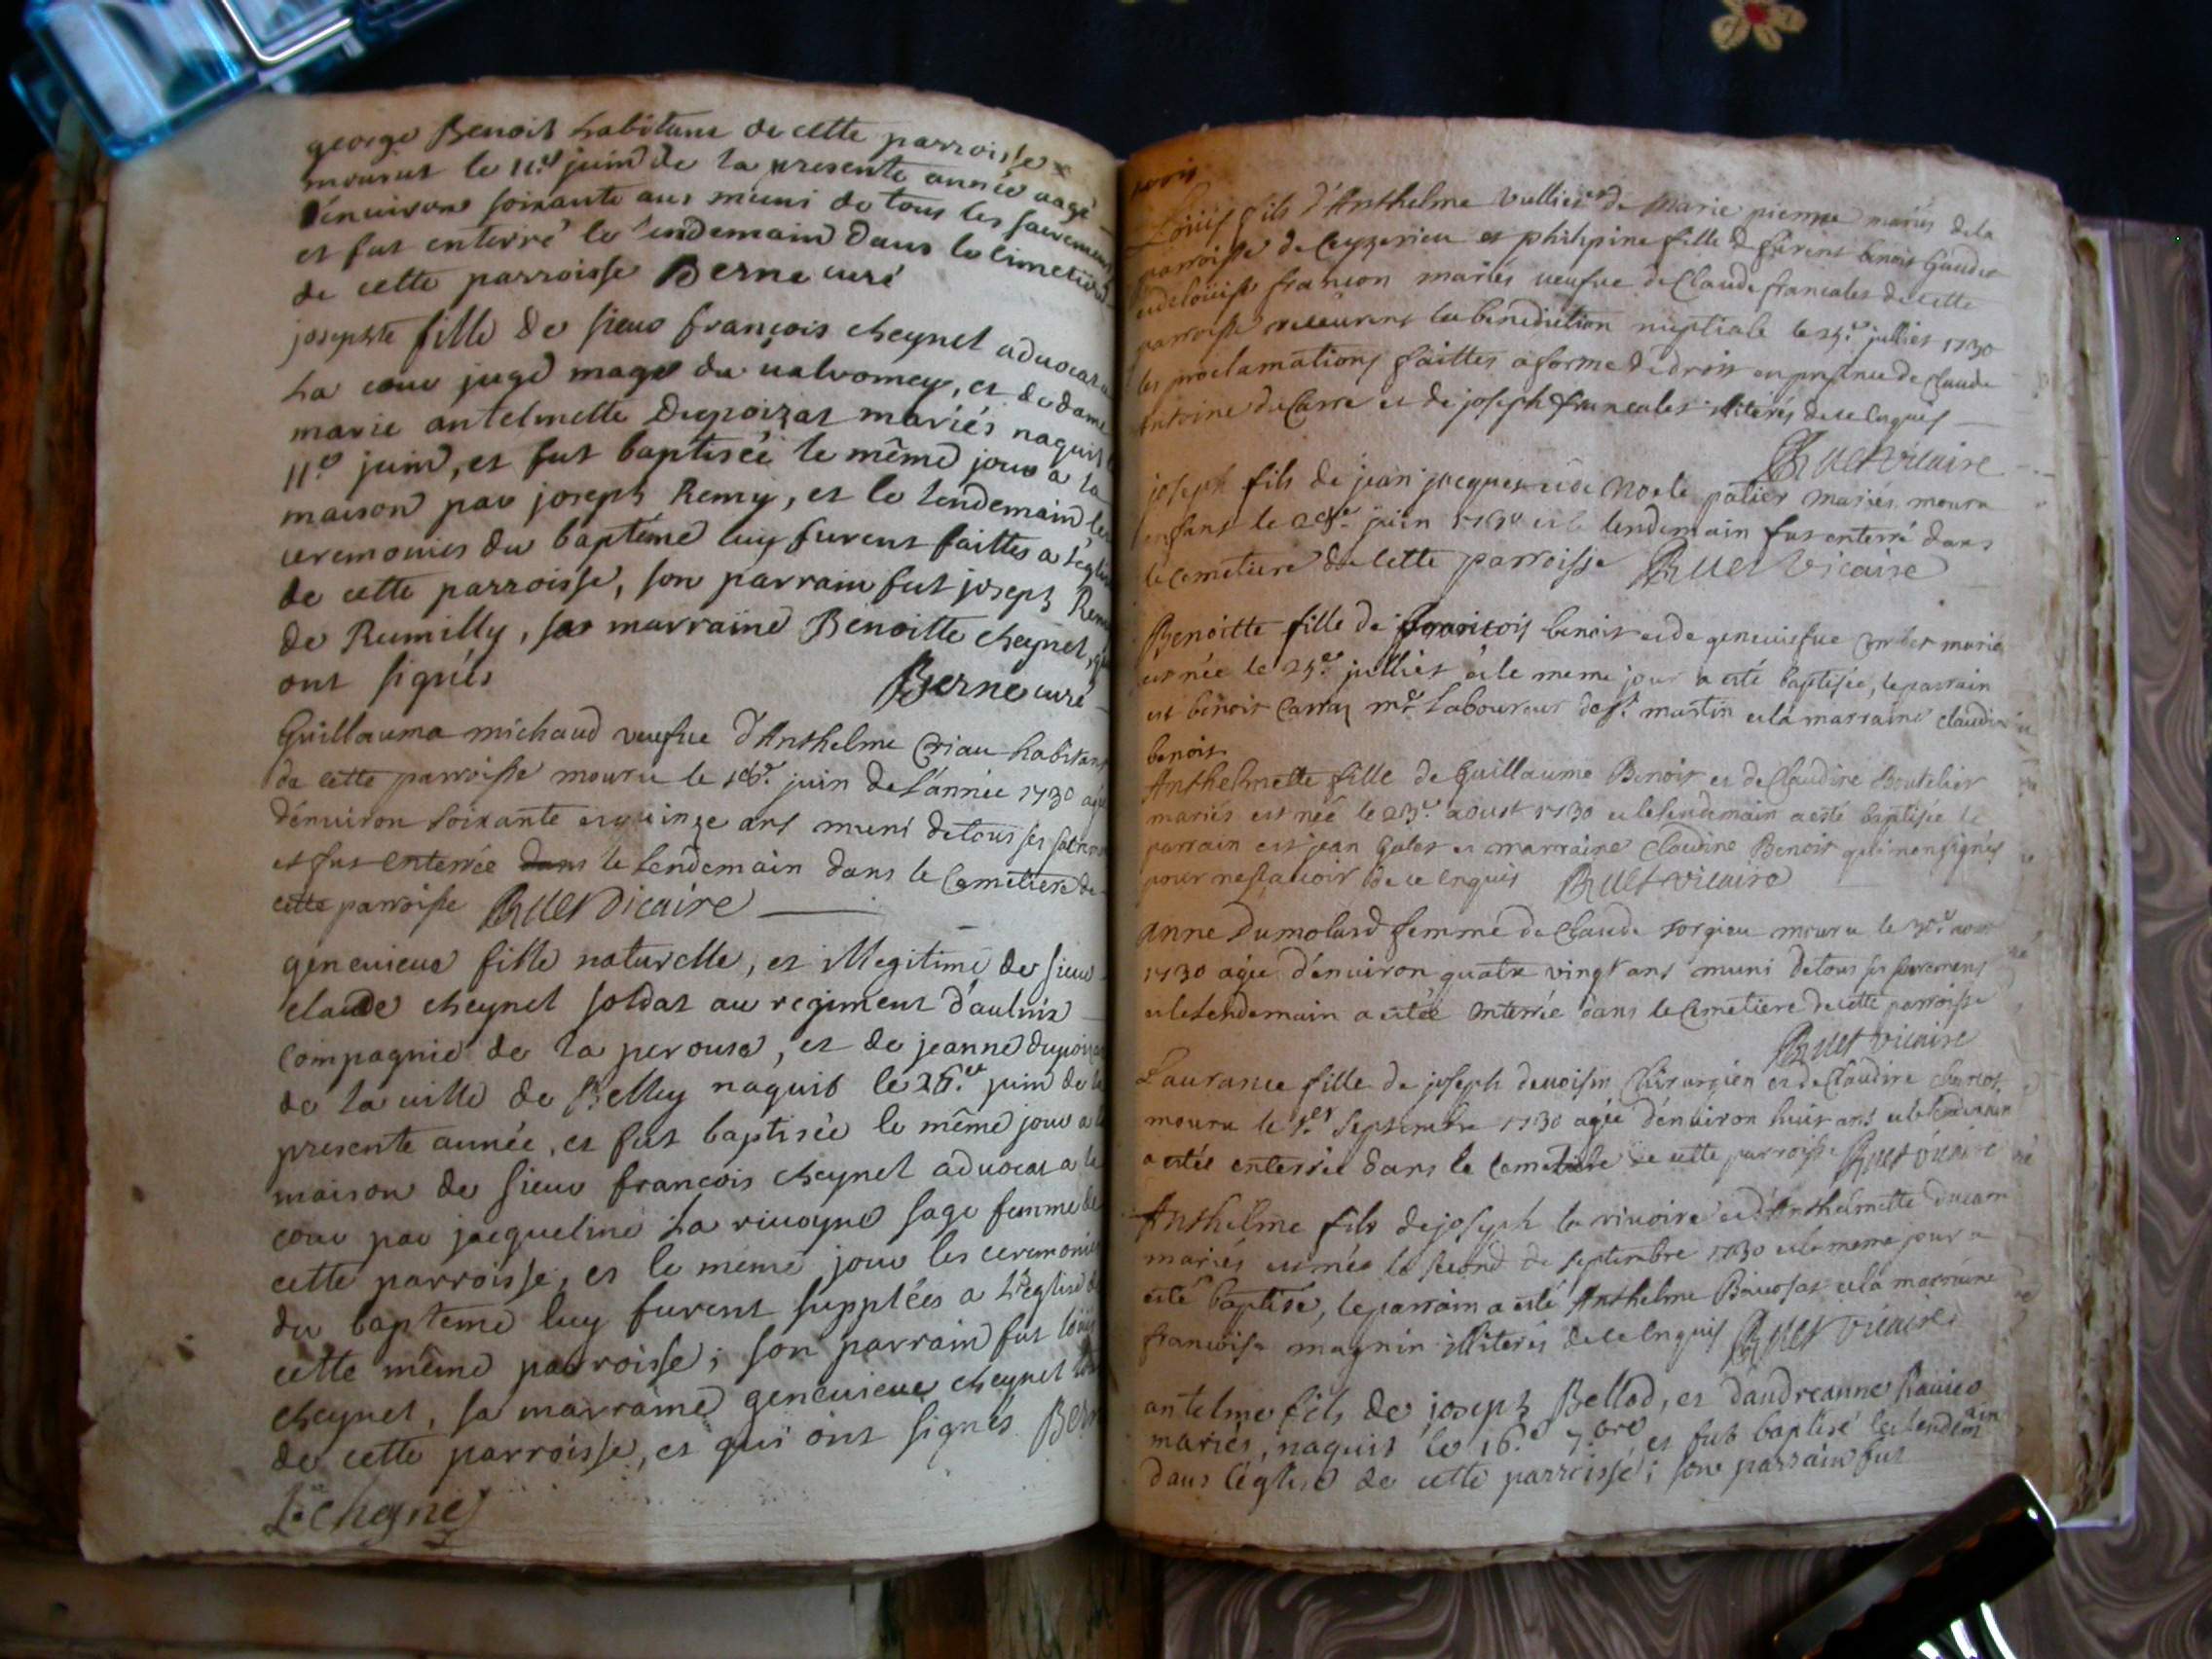 george Benoit habitant de cette parroisse
mourut le 11.e juin de la presente année aagé
d'enuiron soixante ans muni de tous les sacremens
et fut enterré le lendemain dans le cimetiere
de cette parroisse Berne curé
josephte fille de sieur françois cheynel aduocat a
la cour juge mage du valromey, et de dame
marie antelmette Dupoizat mariés naquit le
11.e juin, et fut baptisée le même jour a la
maison par joseph Remy, et le lendemain les
ceremonies du baptême luy furent faittes a l'église
de cette parroisse, son parrain fut joseph Remy
de Rumilly, sa marraine Benoitte cheynel, qui
ont signés
Berne curé
Guillauma michaud veufue d'Anthelme Criau habitant
de cette parroisse mouru le 16.e juin de l'année 1730 agée
d'enuiron soixante et quinze ans muni de tous ses sacremens
et fut enterrée dans le lendemain dans le Cemetiere de
cette parroisse Ruet Vicaire
geneuieue fille naturelle, et illegitime de sieur
claude cheynel soldat au regiment d'aulnix
compagnie de la perouse, et de jeanne dupoizat
de la uille de Belley naquit le 26.e juin de la
presente année, et fut baptisée le même jour a la
maison de sieur françois cheynel aduocat a la
cour par jacqueline La riuoyre sage femme de
cette parroisse, et le même jour les ceremonies
du baptême luy furent supplées a l'eglise de
cette même parroisse; son parrain fut loüis
cheynel, sa marraine geneuieue cheynel tous
de cette parroisse, et qui ont signés Berne
L. Cheynel
Loüis fils d'Anthelme Vullier et de Marie pierre mariés de la
parroisse de Ceyzerieu et philipine fille de benoit Gaudet
et de loüise françon mariés ueufue de Claude francales de cette
parroisse reçeurent la benediction nuptiale le 25.e julliet 1730
les proclamations faittes a forme de droit en presence de Claude
Antoine du Carre et de joseph francales illiterés de ce enquis
Ruet vicaire
joseph fils de jean jacques et de Noele patier mariés mouru
enfant le juin et le lendemain fut enterré dans
le Cemetiere de cette parroisse Ruet Vicaire
Benoitte fille de françois benoit et de geneuiefue mariés
est née le 25.e julliet et le meme jour a esté baptisée, le parrain
est benoit Carraz m.e Laboureur de s.t martin et la marraine claudine
benoit
Anthelmette fille de Guillaume Benoit et de Claudine Boutelier
mariés est née le 23.e aoust 1730 et le lendemain a esté baptisée le
parrain est jean Galet et marraine Claudine Benoit qui n'on signés
pour ne sçauoir de ce enquis Ruet vicaire
Anne Dumolard femme de Claude sorgieu mouru le aout
1730 agée d'enuiron quatre vingt ans muni de tous ses sacremens
et le lendemain a estée enterrée dans le Cemetiere de cette parroisse
Ruet vicaire
Laurance fille de joseph deuoisin Chirurgien et de Claudine
mouru le 1.er Septembre 1730 agée d'enuiron huit ans et le lendemain
a estée enterrée dans le Cemetiere de cette parroisse Ruet vicaire
Anthelme fils de joseph la riuoire et d'Anthelmette ducarre
mariés est née le second de septembre 1730 et le meme jour a
esté baptisé, le parrain a esté Anthelme et la marraine
françoise magnin illiterés de ce enquis Ruet vicaire
antelme fils de joseph Bellod, et d'andreanne Rauier
mariés, naquit le 16.e 7.bre et fut baptisé le lendemain
dans l'église de cette parroisse; son parrain fut